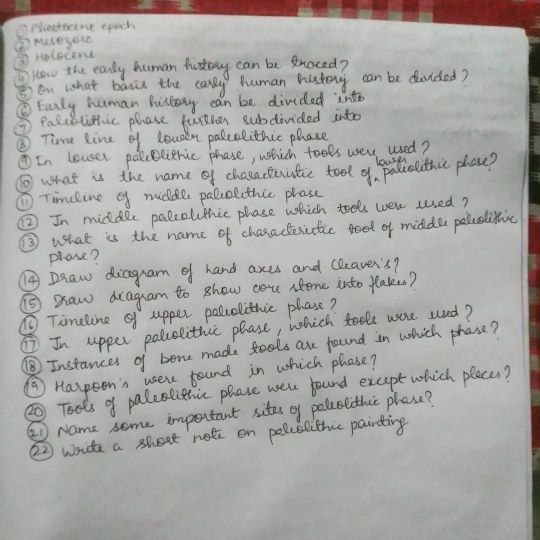 ① Pliestocene epoch
② Mesozoic
③ Holocene
④ How the early human history can be traced?
⑤ On what basis the early human history can be divided?
⑥ Early human history can be divided into
⑦ Paleolithic phase further subdivided into
⑧ Time line of lower paleolithic phase
⑨ In lower paleolithic phase, which tools were used?
⑩ What is the name of characteristic tool of lower paleolithic phase?
⑪ Timeline of middle paleolithic phase
⑫ In middle paleolithic phase which tools were used?
⑬ What is the name of characteristic tool of middle paleolithic
phase?
⑭ Draw diagram of hand axes and cleaver's?
⑮ Draw diagram to show core stone into flakes?
⑯ Timeline of upper paleolithic phase?
⑰ In upper paleolithic phase, which tools were used?
⑱ Instances of bone made tools are found in which phase?
⑲ Harpoon's were found in which phase?
⑳ Tools of paleolithic phase were found except which places?
㉑ Name some important sites of paleolithic phase?
㉒ Write a short note on paleolithic painting